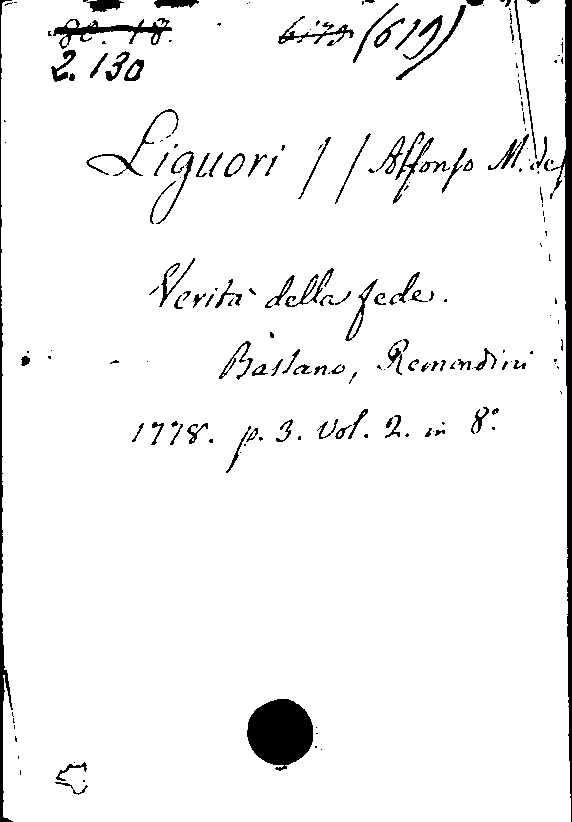 (619)
2. 130
Liguori // Alfonso M. de/
Verità della fede.
Bassano, Remondini
1778. p. 3. Vol. 2. in 8°